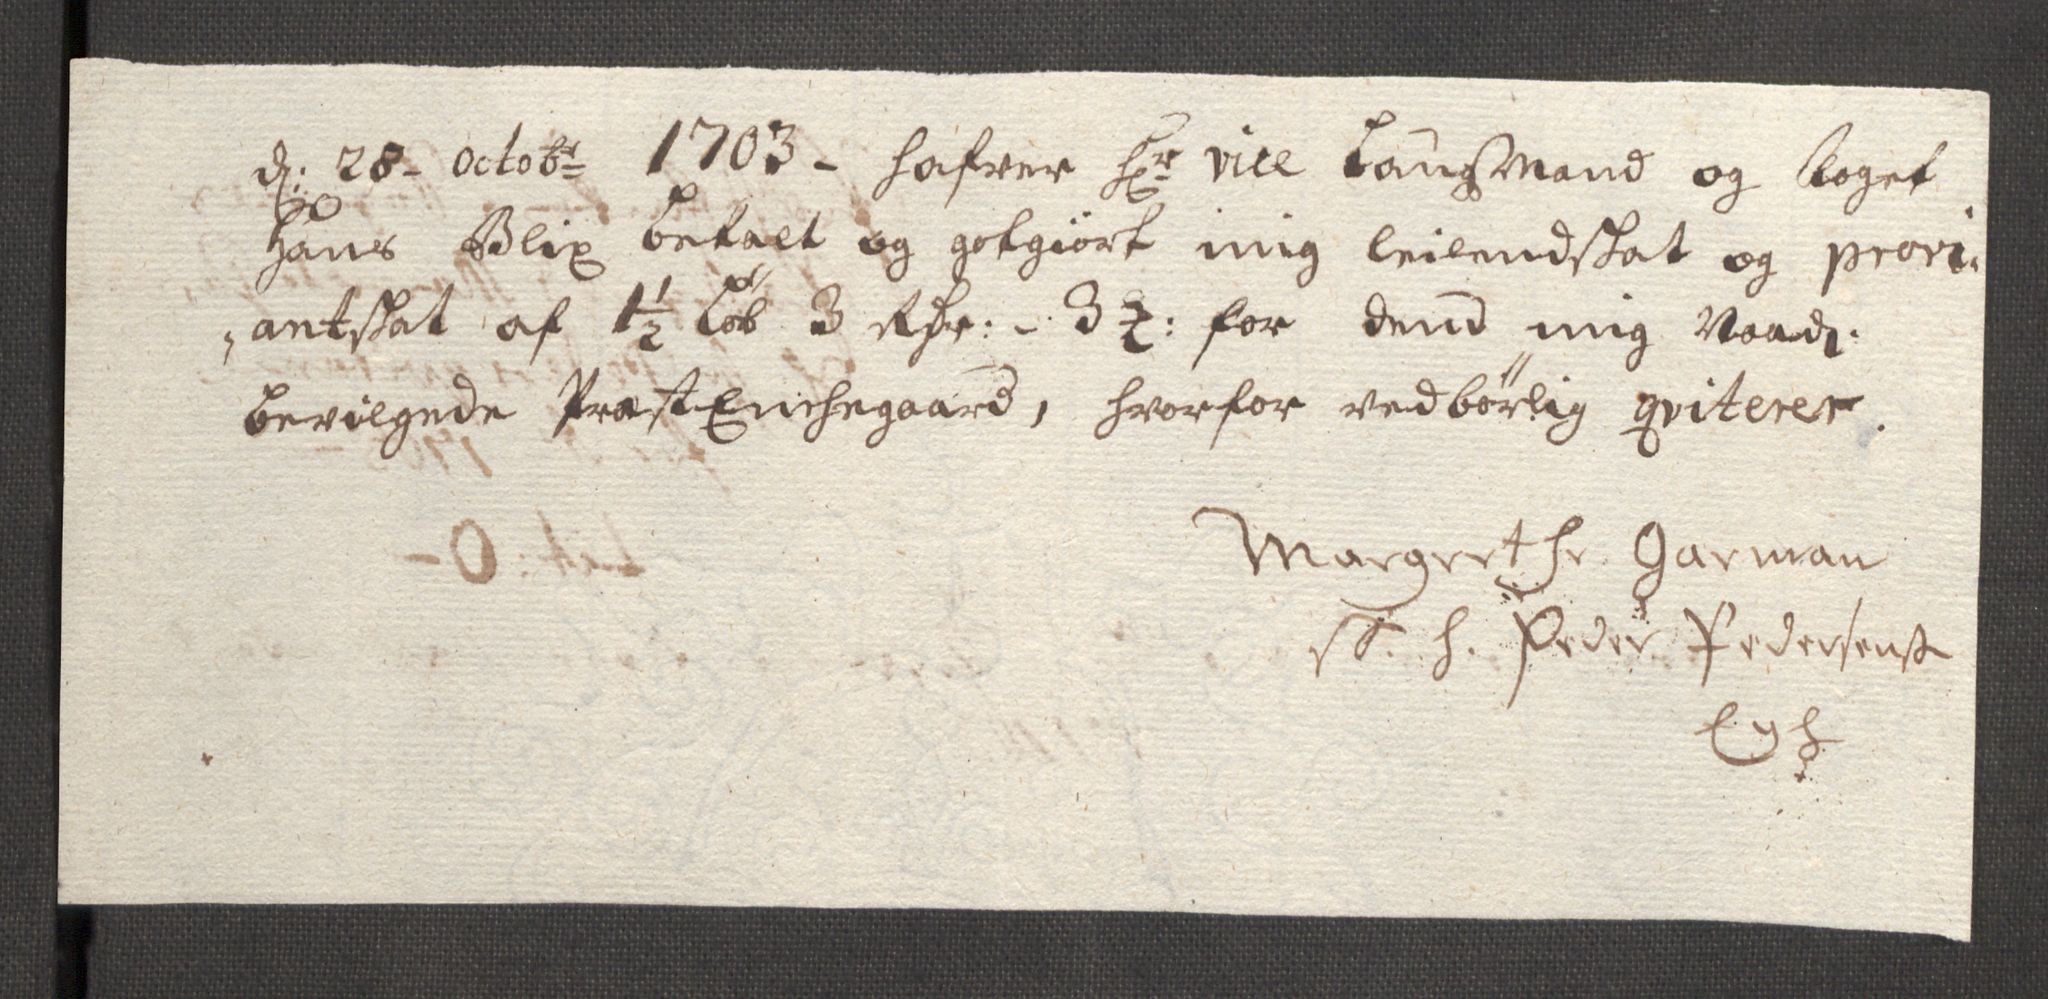 d: 28 - Octobr 1703 - hafver Hr Vice Laugmand og foget
Hans Blix betalt og gotgiört mig leilendskat og provi-
,antskat af 1½ Løb 3 Rdr: - 3 : for dend mig Naad:
bevilgede PræstEnchegaard, hvorfor vedbörlig qviterer.
Margrethe Garman
S. H. Peder Pedersens